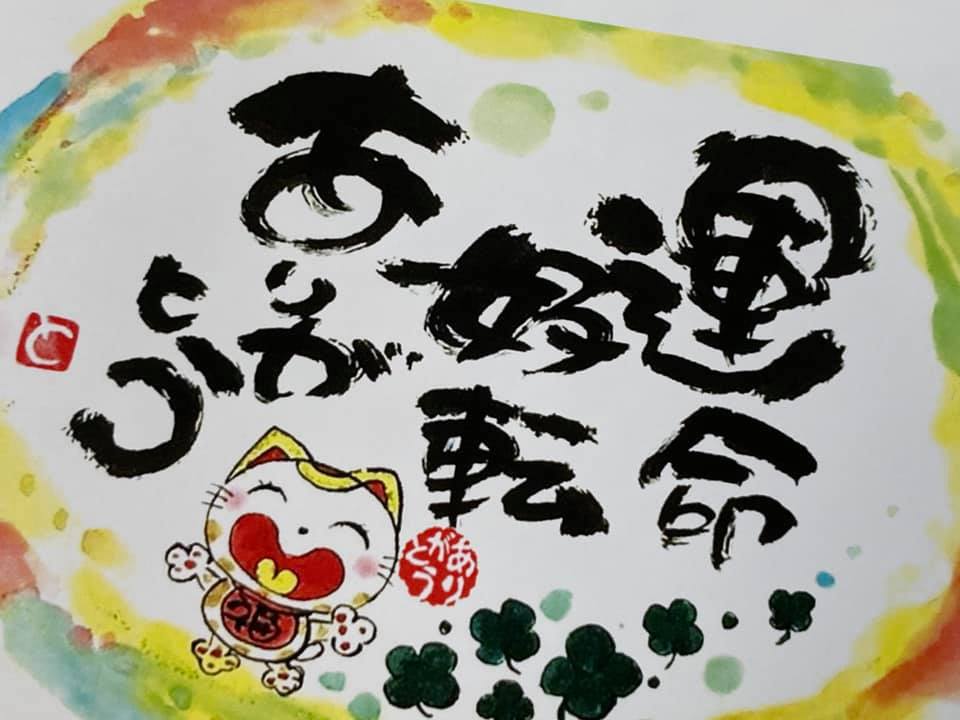 運命
好転
ありが
とう
ありがとう
福